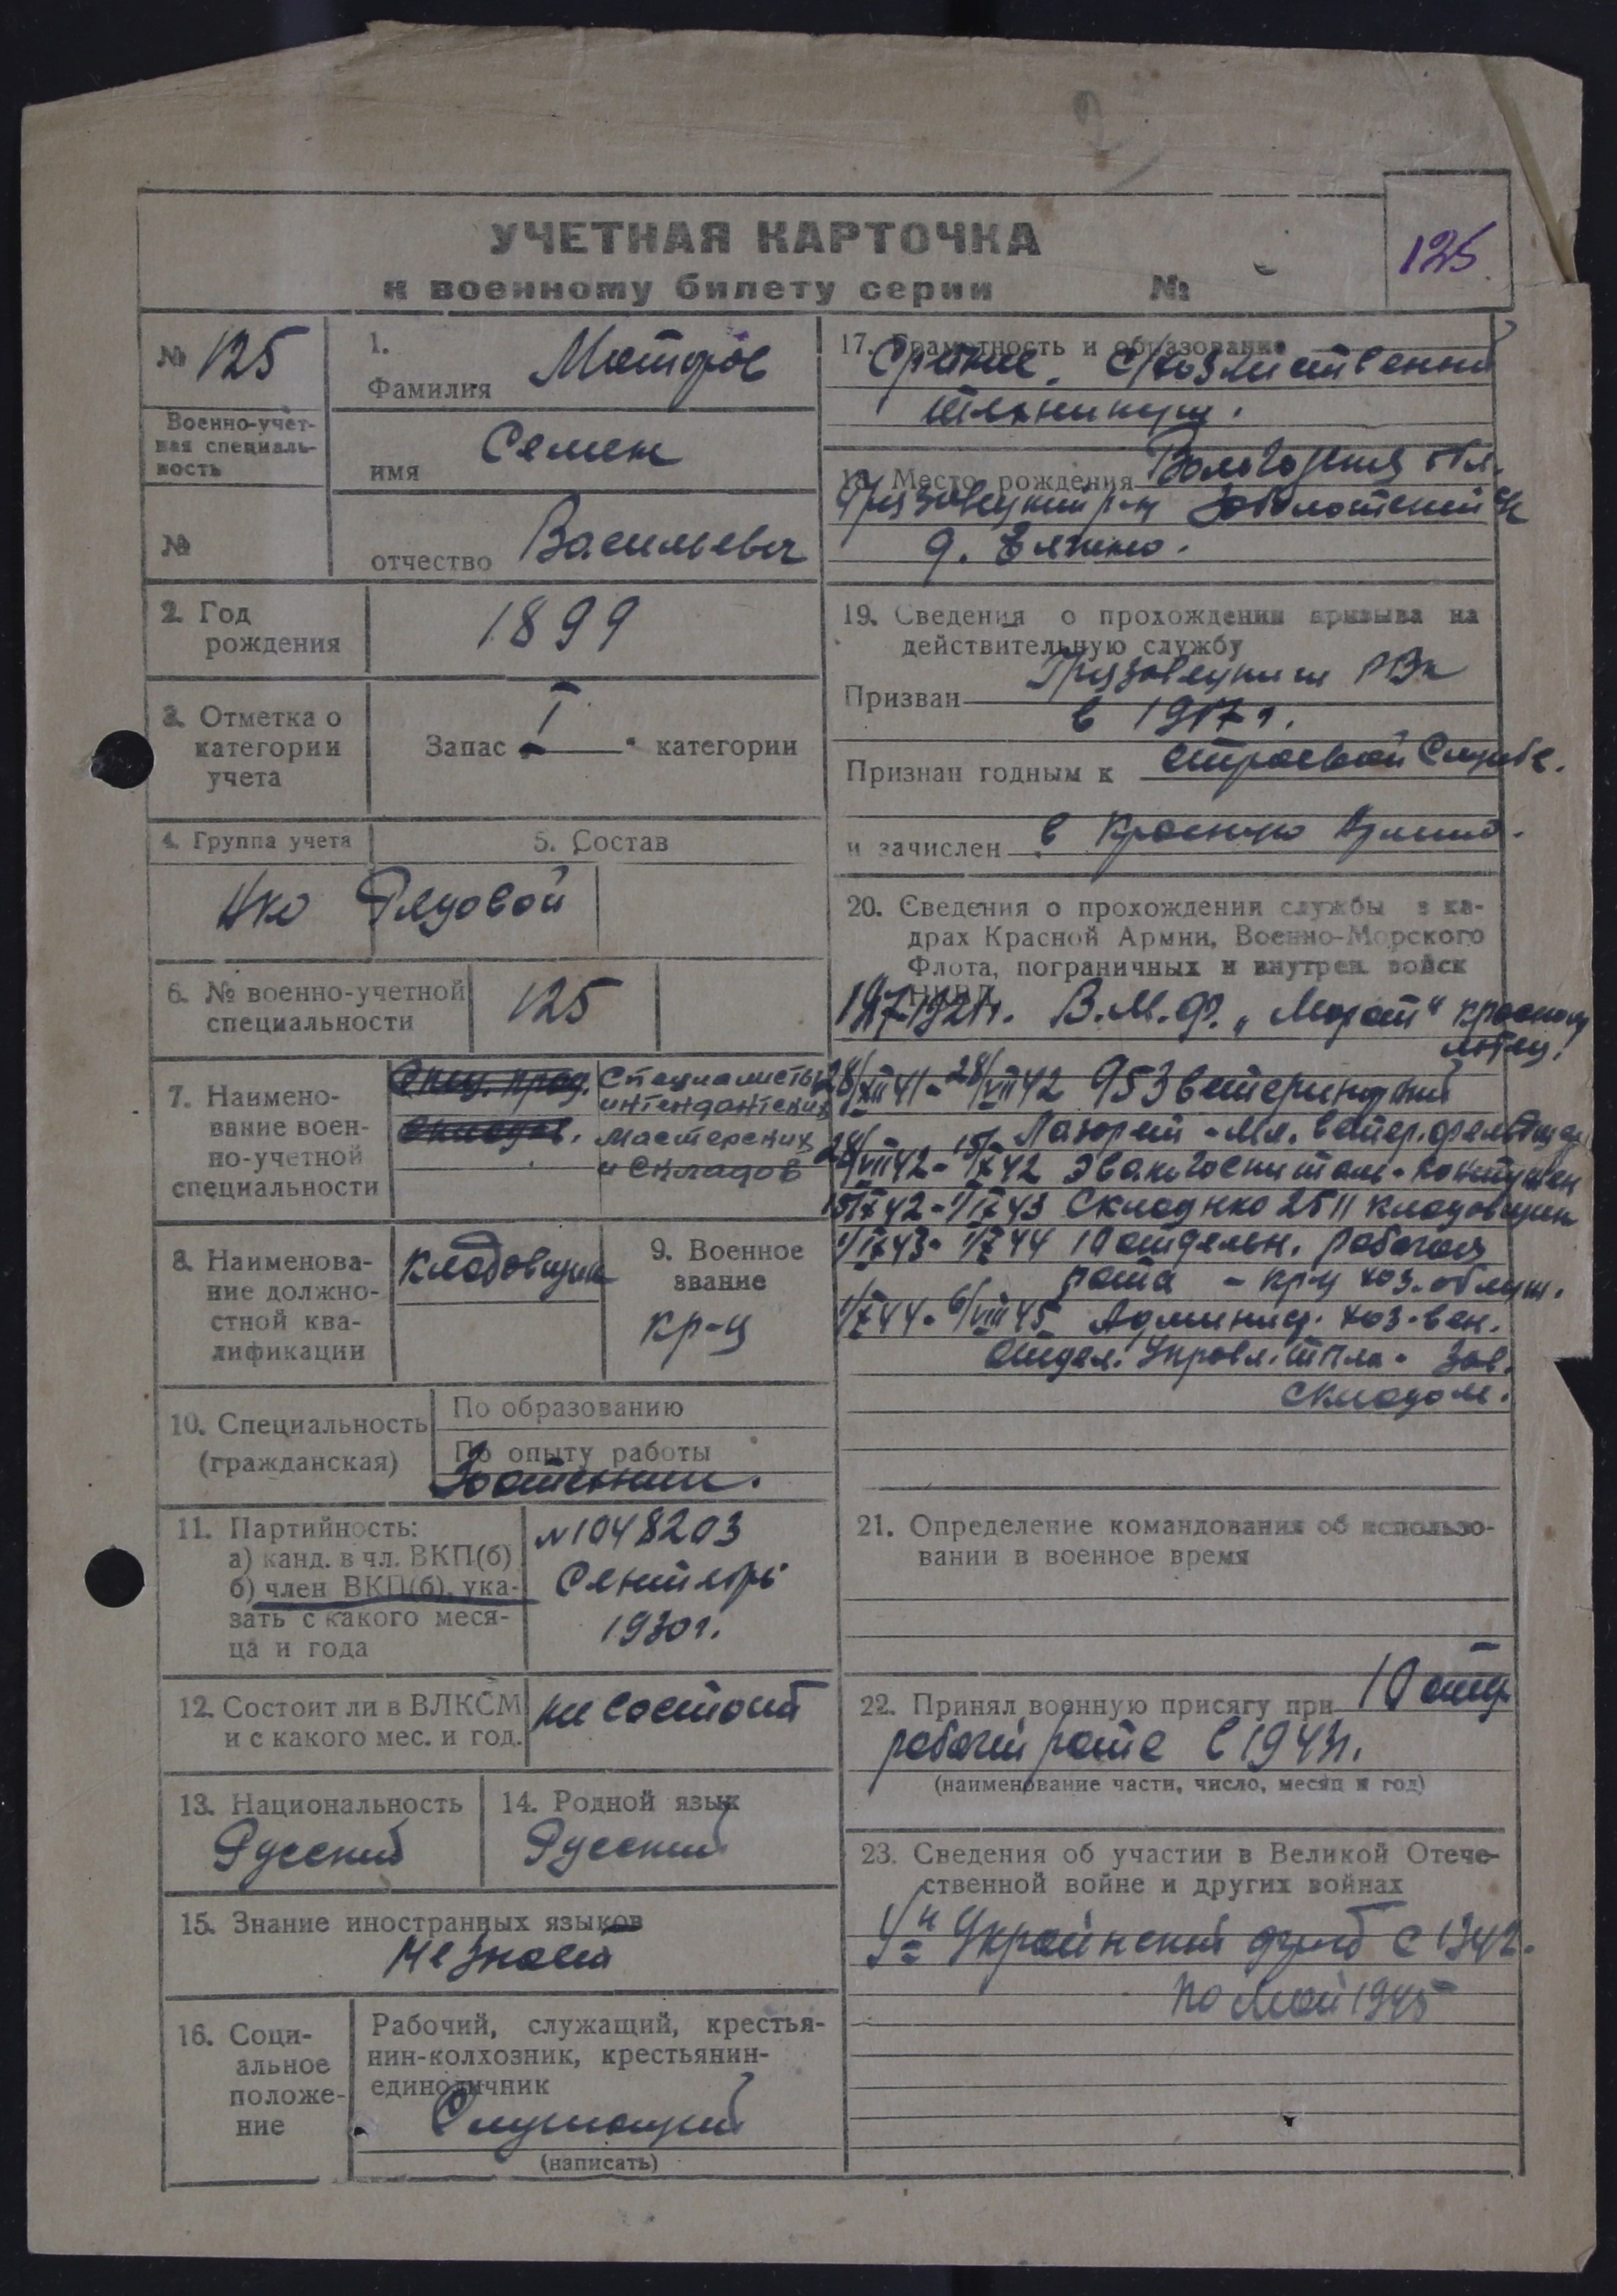 2
УЧЕТНАЯ КАРТОЧКА
к военному билету серии №
125
№ 125
Военно-учет-
ная специаль-
ность
№
1.
Фамилия
имя Семен
отчество Васильевич
2. Год
рождения
1899
3. Отметка о
категории
учета
Запас I категории
4. Группа учета
5. Состав
НКО Рядовой
6. № военно-учетной
специальности
125
7. Наимено-
вание воен-
но-учетной
специальности
Специалисты
интендантских
мастерских
и складов
8. Наименова-
ние должно-
стной ква-
лификации
Кладовщик
9. Военное
звание
кр-ц
10. Специальность
(гражданская)
По образованию
По опыту работы
Зоотехник.
11. Партийность:
а) канд. в чл. ВКП(б)
б) член ВКП(б), ука-
зать с какого меся-
ца и года
№1048203
Сентябрь
1930г.
12. Состоит ли в ВЛКСМ
и с какого мес. и год.
не состоит
13. Национальность
Русский
14. Родной язык
Русский
15. Знание иностранных языков
Не знает
16. Соци-
альное
положе-
ние
Рабочий, служащий, крестья-
нин-колхозник, крестьянин-
единоличник
Служащий
(написать)
17. Грамотность и образование
Среднее.
техникум.
18. Место рождения Вологодская обл.
Грязовецкий р-н
д.
19. Сведения о прохождении призыва на
действительную службу
Призван Грязовецким РВК
в 1917г.
Признан годным к строевой службе.
и зачислен в Красную Армию.
20. Сведения о прохождении службы в ка-
драх Красной Армии, Военно-Морского
Флота, пограничных и внутрен. войск
НКВД
1917-1921г. В.М.Ф. „Марат“ красноф
лотец.
28/XII 41 - 28/VII 42 953 ветеринарный
Лазарет - мл. ветер. фельдшер
28/VII 42 - 15/X 42 Эвакогоспиталь -
15/X 42 - 1/IX 43 Склад НКО 2511 кладовщик
1/IX 43 - 1/X 44 10 отдельн. рабочая
рота - кр-ц хоз. обслуж.
1/X 44 - 6/VIII 45 Админист. хоз.
отдел. Управл. - зав.
складом.
21. Определение командования об использо-
вании в военное время
22. Принял военную присягу при 10 отд
рабочей роте в 1943г.
(наименование части, число, месяц и год)
23. Сведения об участии в Великой Отече-
ственной войне и других войнах
Украинский фронт с 1942.
по май 1945